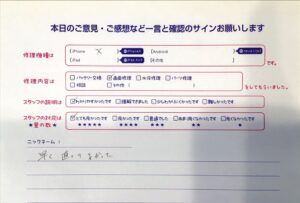 本日のご意見・ご感想など一言と確認のサインお願いします
修理機種は
iPhone X
Android
iPad
その他
です。
修理内容は
バッテリー交換 ☑画面修理 水没修理 パーツ修理
相談 その他（
をしてもらいました。
スタッフの説明は
☑わかりやすかったです 理解できました 少しわかりにくかったです 難しかったです
スタッフの対応は
☑とても良かったです 良かったです 普通でした あまり良くなかったです 良くなかったです
★星の数★
★★★★★ ★★★★ ★★★ ★★ ★
ニックネーム：
早く直ってよかった